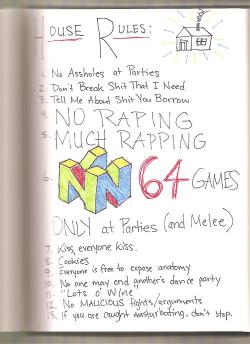 HOUSE RULES:
1. No Assholes at Parties
2. Don't Break Shit That I Need
3. Tell Me About Shit You Borrow
4. NO RAPING
5. MUCH RAPPING
6. N 64 GAMES
ONLY at Parties (and Melee)
7. Kiss, everyone kiss.
8. Cookies
9. Everyone is free to expose anatomy
10. No one may end another's dance party
11. "Lots o' Wine"
12. No MALICIOUS fights/arguments
13. If you are caught masturbating, don't stop.